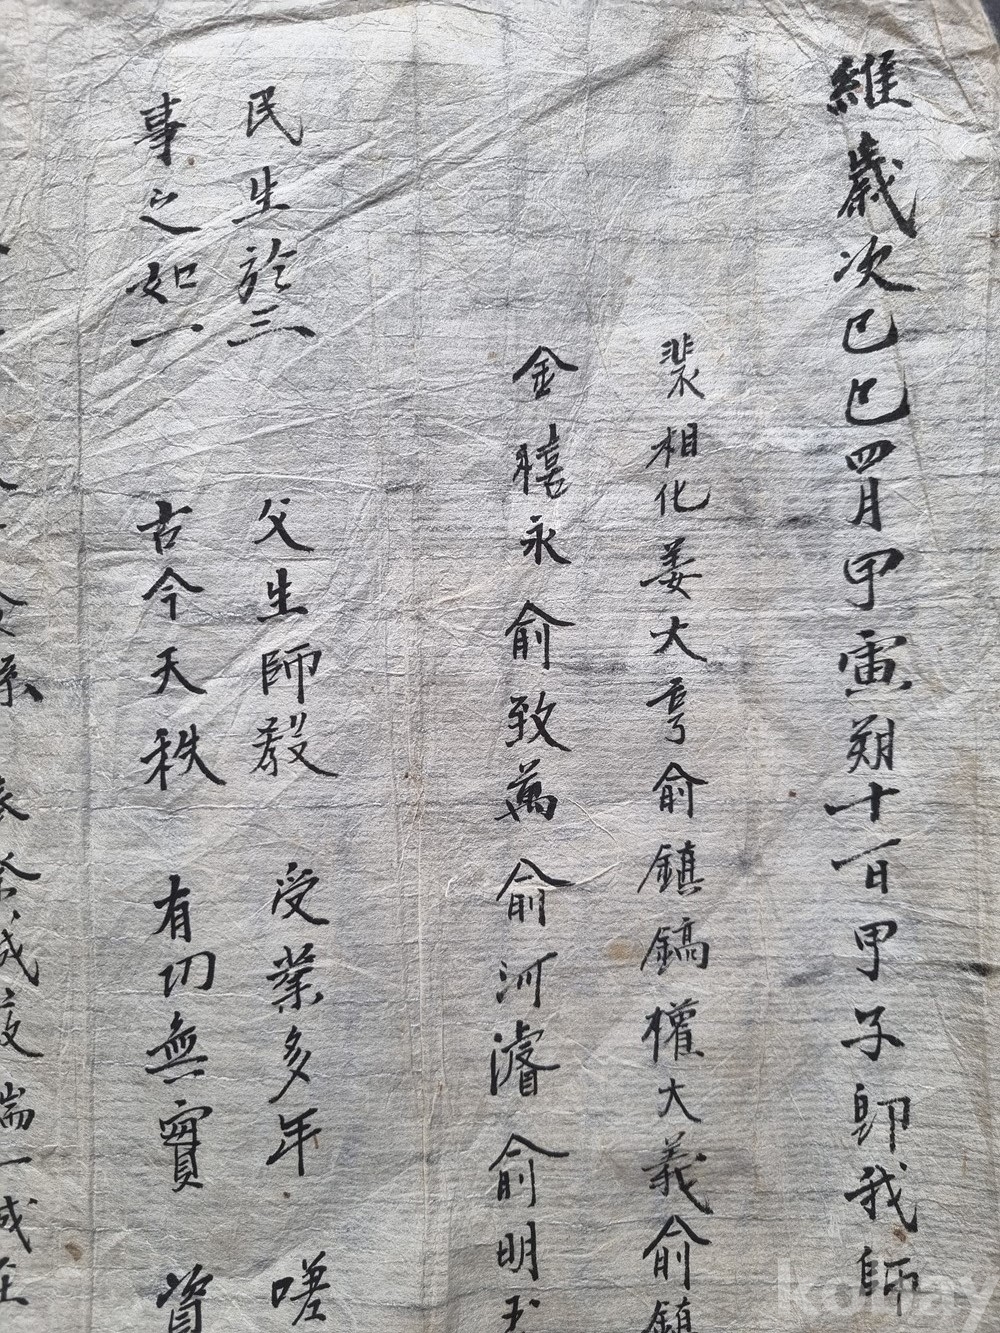 維歲次己巳四月甲寅朔十一日甲子卽我師
裴相化姜大亨俞鎮鎬權大義俞鎮
金禧永俞致萬俞河濬俞明
民生於三 父生師教 受業多年 嗟
事之如一 古今天秩 有切無實 資
誠 端一誠至
kobay